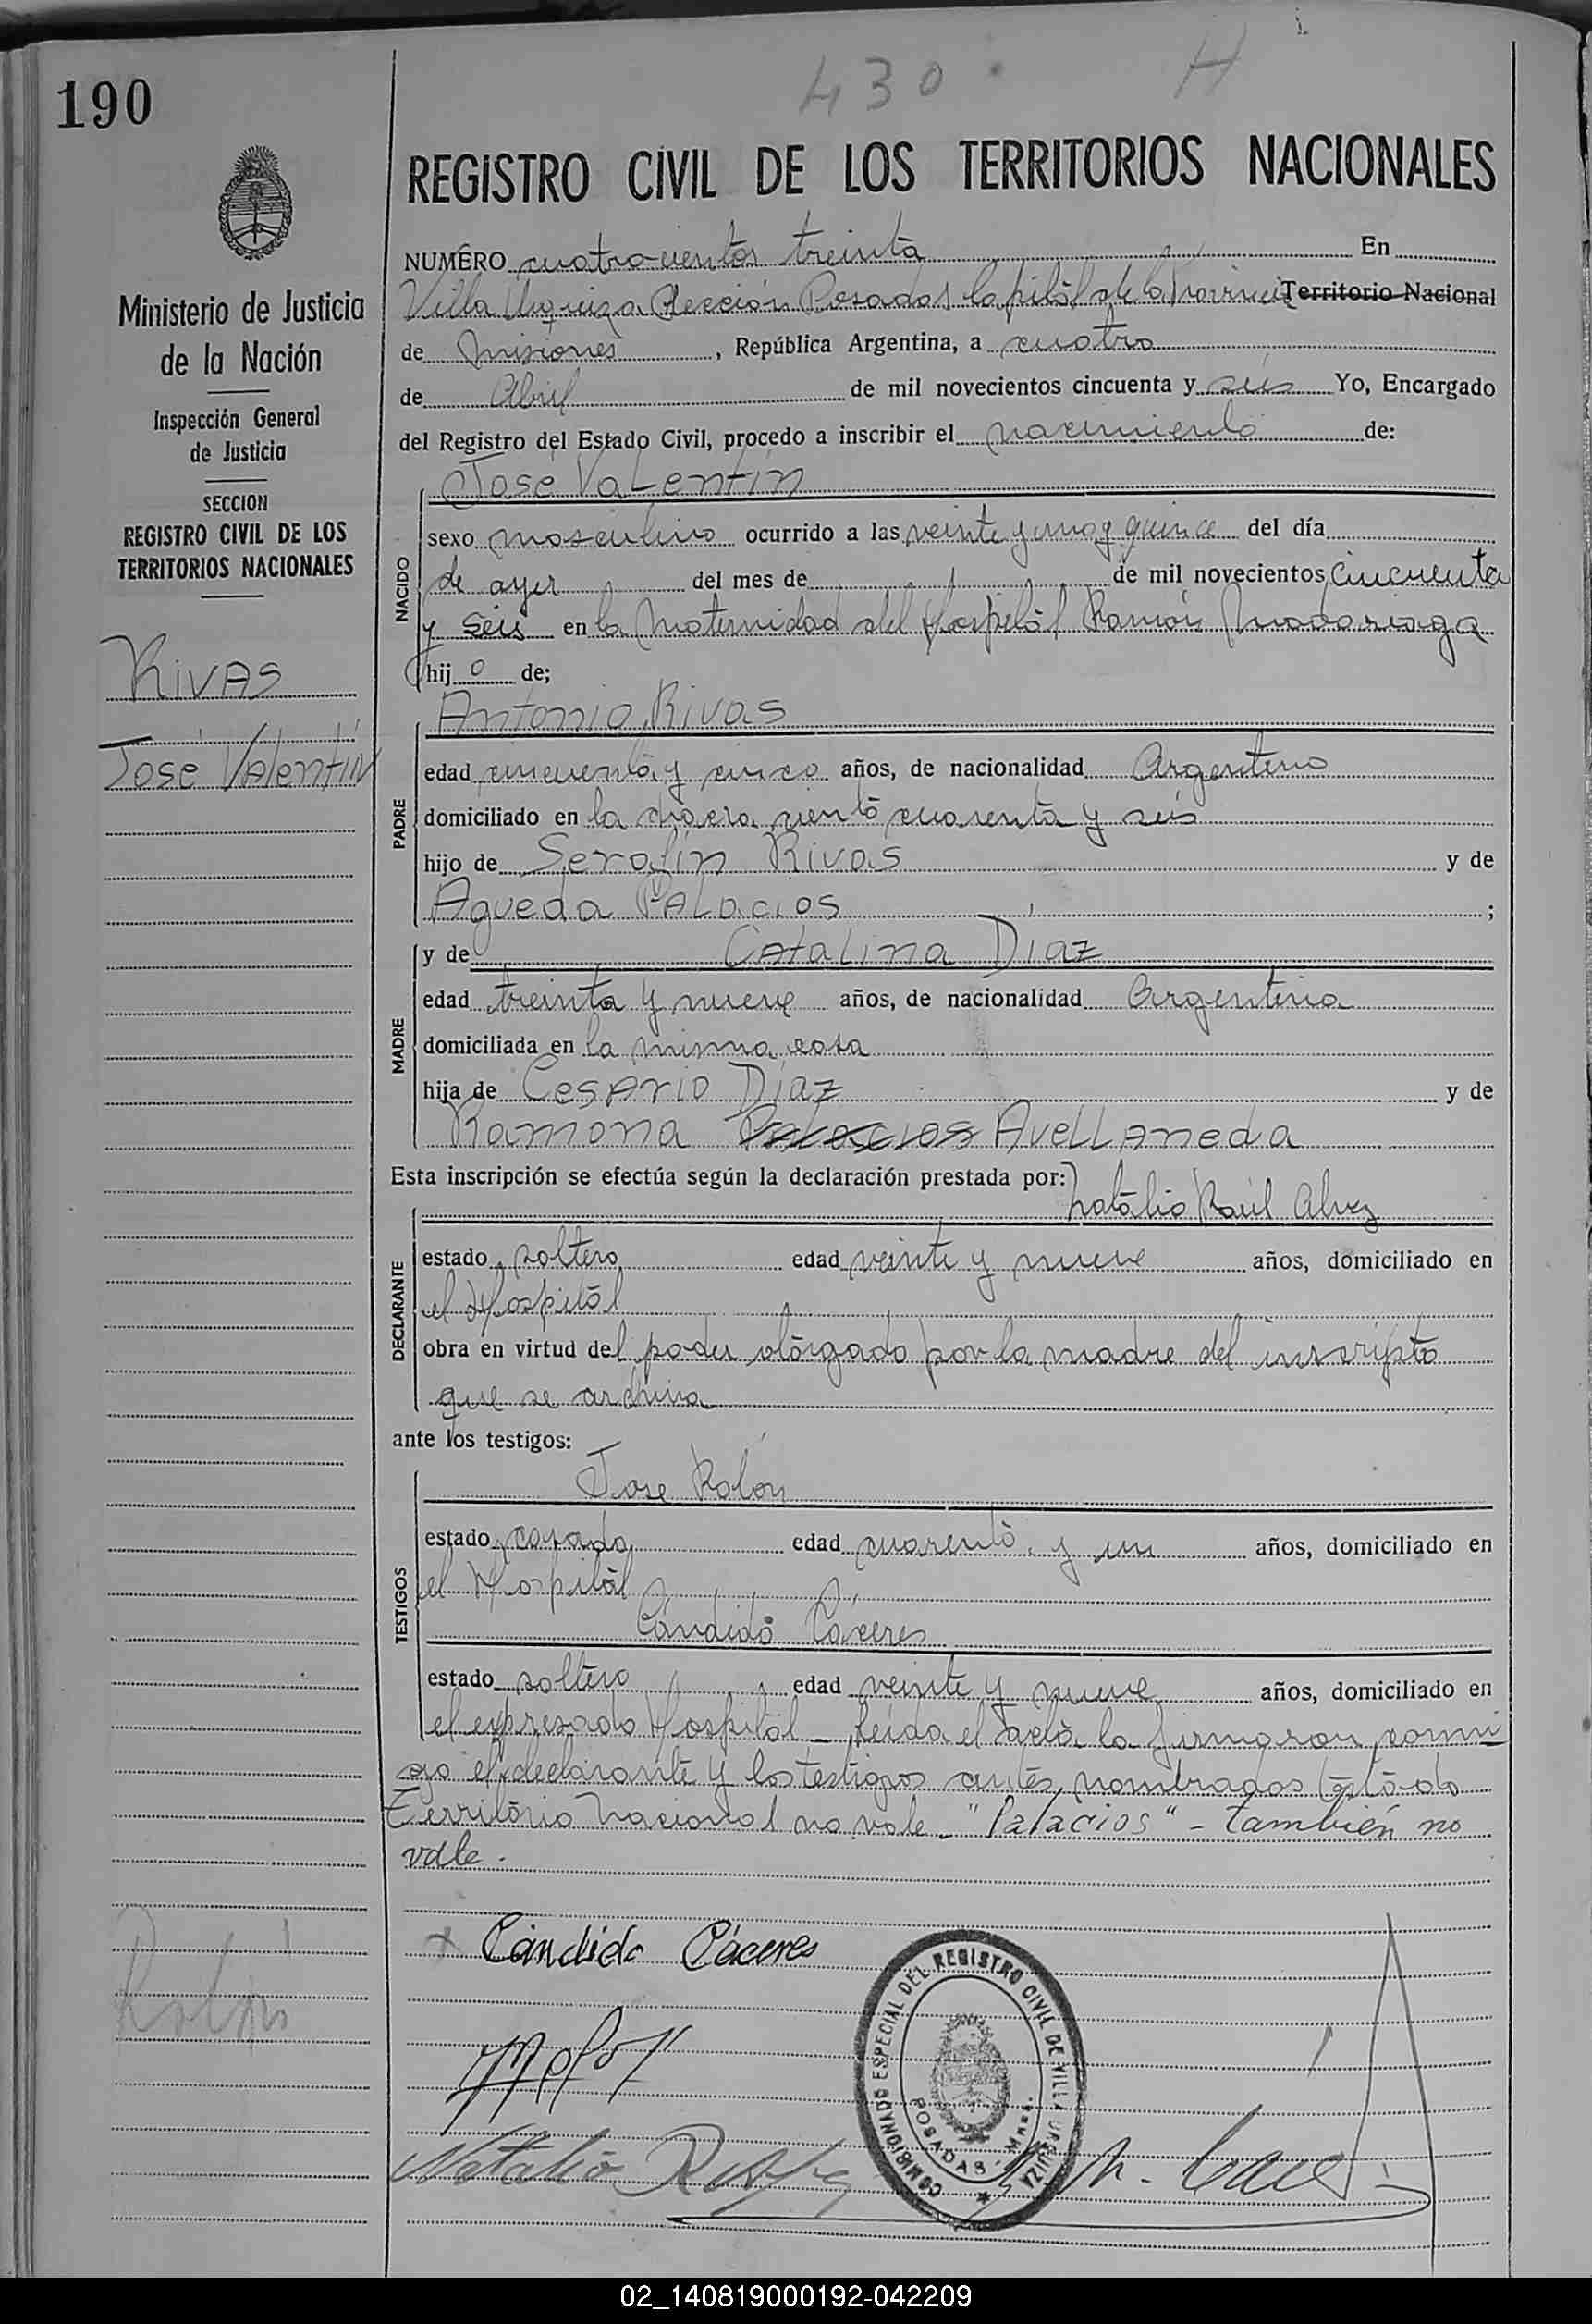 190
430 H
REGISTRO CIVIL DE LOS TERRITORIOS NACIONALES
Ministerio de Justicia
de la Nación
Inspección General
de Justicia
SECCION
REGISTRO CIVIL DE LOS
TERRITORIOS NACIONALES
RIVAS
José Valentín
NUMERO cuatrocientos treinta En
Villa Urquiza Sección Posadas Capital de la Provincia Territorio Nacional
de Misiones, República Argentina, a cuatro
de Abril de mil novecientos cincuenta y seis Yo, Encargado
del Registro del Estado Civil, procedo a inscribir el nacimiento de:
José Valentín
NACIDO
sexo masculino ocurrido a las veinte y una y quince del día
de ayer del mes de de mil novecientos cincuenta
y seis en la Maternidad del Hospital Ramón Madariaga
hij o de;
Antonio Rivas
PADRE
edad cincuenta y cinco años, de nacionalidad Argentino
domiciliado en la chacra ciento cuarenta y seis
hijo de Serafín Rivas y de
Agueda Palacios ;
y de Catalina Diaz
MADRE
edad treinta y nueve años, de nacionalidad Argentina
domiciliada en la misma casa
hija de Cesario Díaz y de
Ramona Palacios Avellaneda
Esta inscripción se efectúa según la declaración prestada por:
Natalio Raúl Alvez
DECLARANTE
estado soltero edad veinte y nueve años, domiciliado en
el Hospital
obra en virtud del poder otorgado por la madre del inscripto
que se archiva
ante los testigos:
José Rolón
TESTIGOS
estado casado edad cuarenta y un años, domiciliado en
el Hospital
Cándido Cáceres
estado soltero edad veinte y nueve años, domiciliado en
el expresado Hospital - Leída el acta la firmaron conmi
go el declarante y los testigos antes nombrados testado
Territorio Nacional no vale - "Palacios" - también no
vale.
Cándido Cáceres
COMISIONADO ESPECIAL DEL REGISTRO CIVIL DE VILLA URQUIZA
POSADAS
Natalio R Alvez
02_140819000192-042209